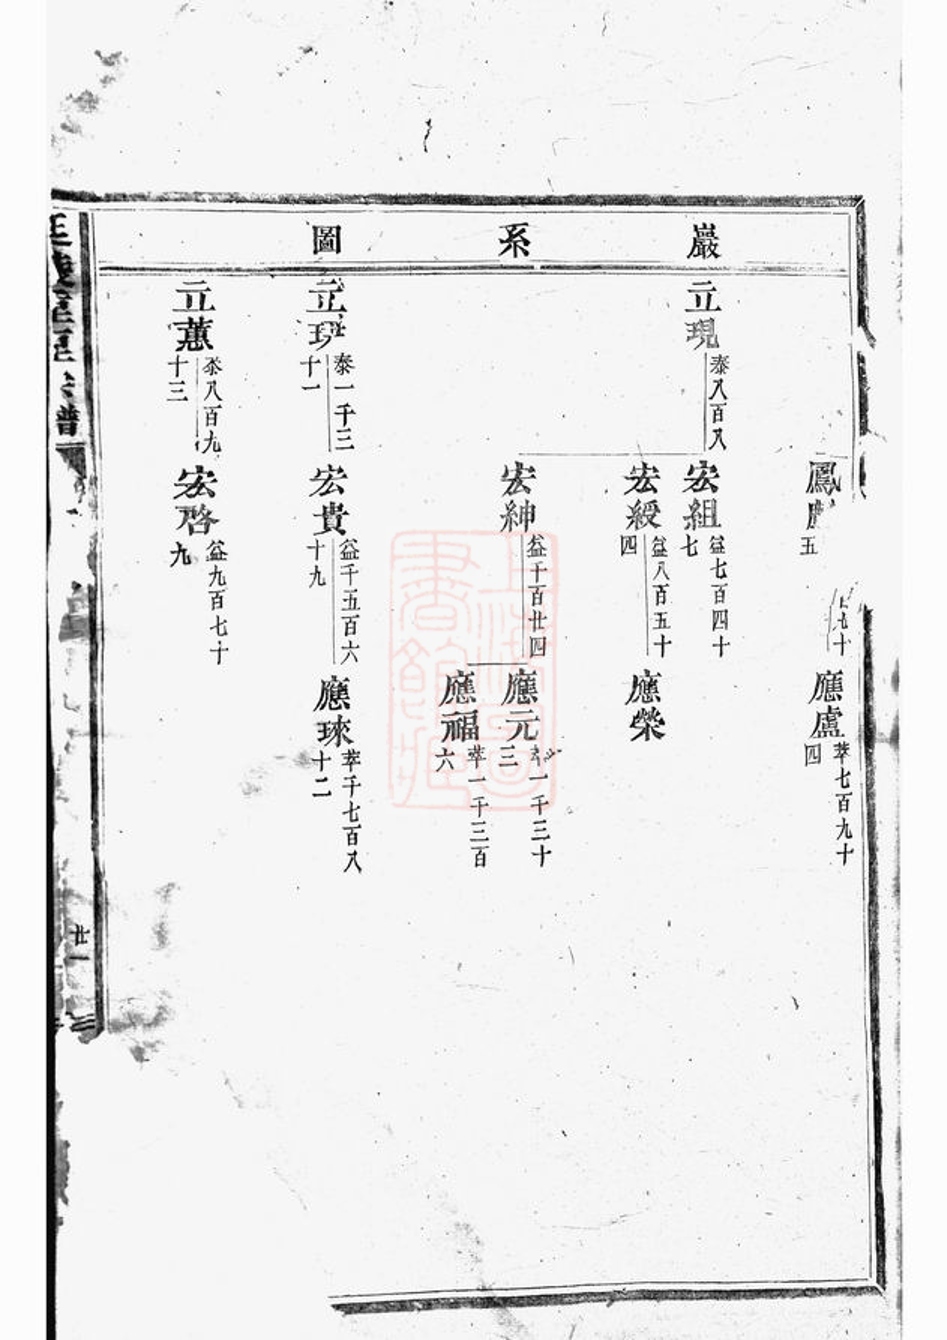 巖系圖
鳳
五
七十
應盧
萃七百九十
四
立現
泰八百八
宏組
益七百四十
七
宏綬
益八百五十
四
應榮
宏紳
益千百廿四
應元
一千三十
三
應福
萃一千三百
六
立
泰一千三
十一
宏貴
益千五百六
十九
應琜
萃千七百八
十二
立蕙
泰八百九
十三
宏啓
益九百七十
九
譜
廿一
上海圖書館藏